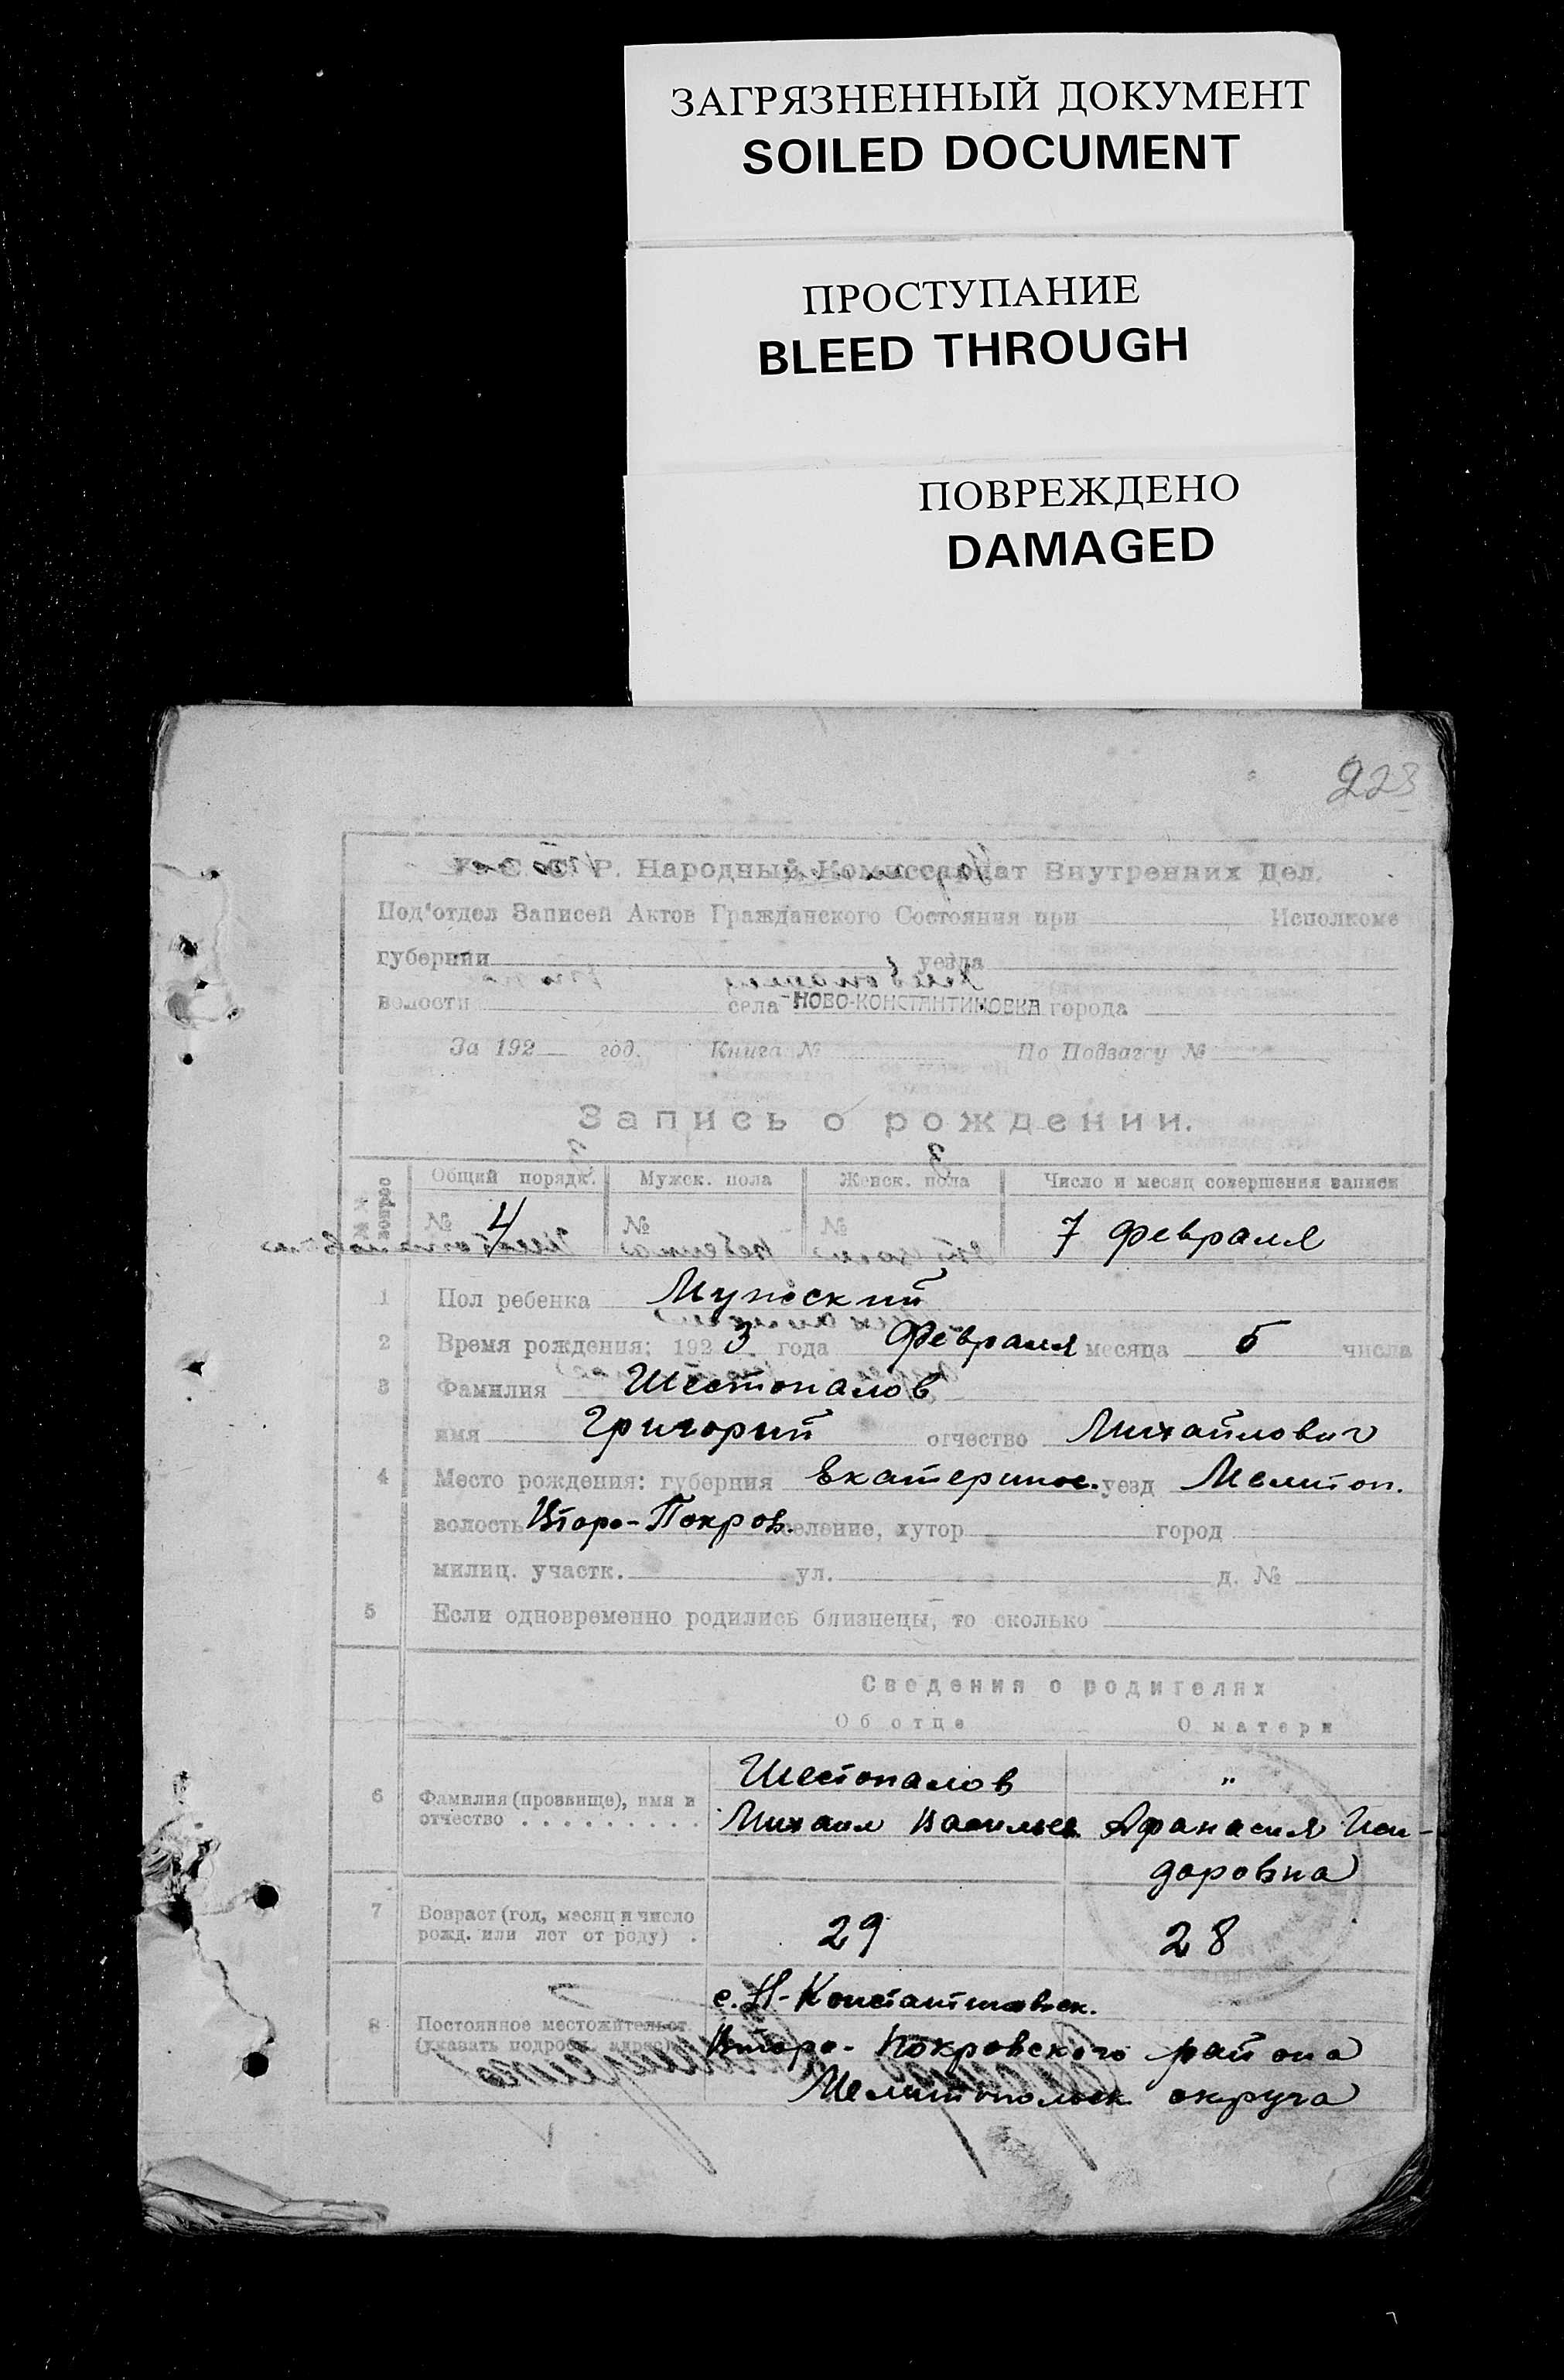 ЗАГРЯЗНЕННЫЙ ДОКУМЕНТ
SOILED DOCUMENT
ПРОСТУПАНИЕ
BLEED THROUGH
ПОВРЕЖДЕНО
DAMAGED
223
Р. Народный Комиссариат Внутренних Дел.
Под'отдел Записей Актов Гражданского Состояния при Исполкоме
губернии уезда
волости села НОВО-КОНСТАНТИНОВКА города
За 192 год. Книга № По Подзагсу №
Запись о рождении.
№№ вопрос Общий порядк. Мужск. пола Женск. пола Число и месяц совершения записи
№ 4 № № 7 февраля
1 Пол ребенка Мужеский
2 Время рождения: 192 3 года Февраля месяца 5 числа
3 Фамилия Шестопалов
имя Григорий отчество Михайлович
4 Место рождения: губерния Екатеринос. уезд Мелитоп.
волость Второ-Покров. селение, хутор город
милиц. участк. ул. д. №
5 Если одновременно родились близнецы, то сколько
Сведения о родителях
Об отце О матери
6 Фамилия (прозвище), имя и отчество Шестопалов "
Михаил Васильев Афанасия Иси-
доровна
7 Возраст (год, месяц и число рожд. или лет от роду) 29 28
с. Н-Константиновск.
8 Постоянное местожительст. (указать подробн. адрес) Второ-Покровского района
Мелитопольск округа